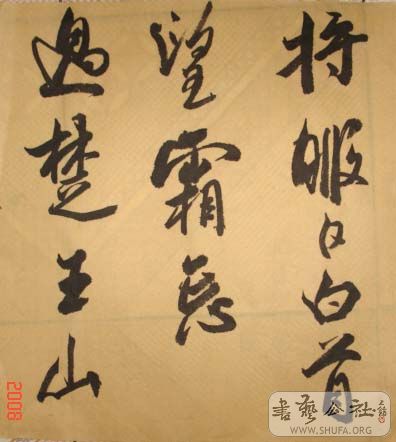 将暇日白首
望霜
過楚王山
2008
書藝公社
WWW.SHUFA.ORG